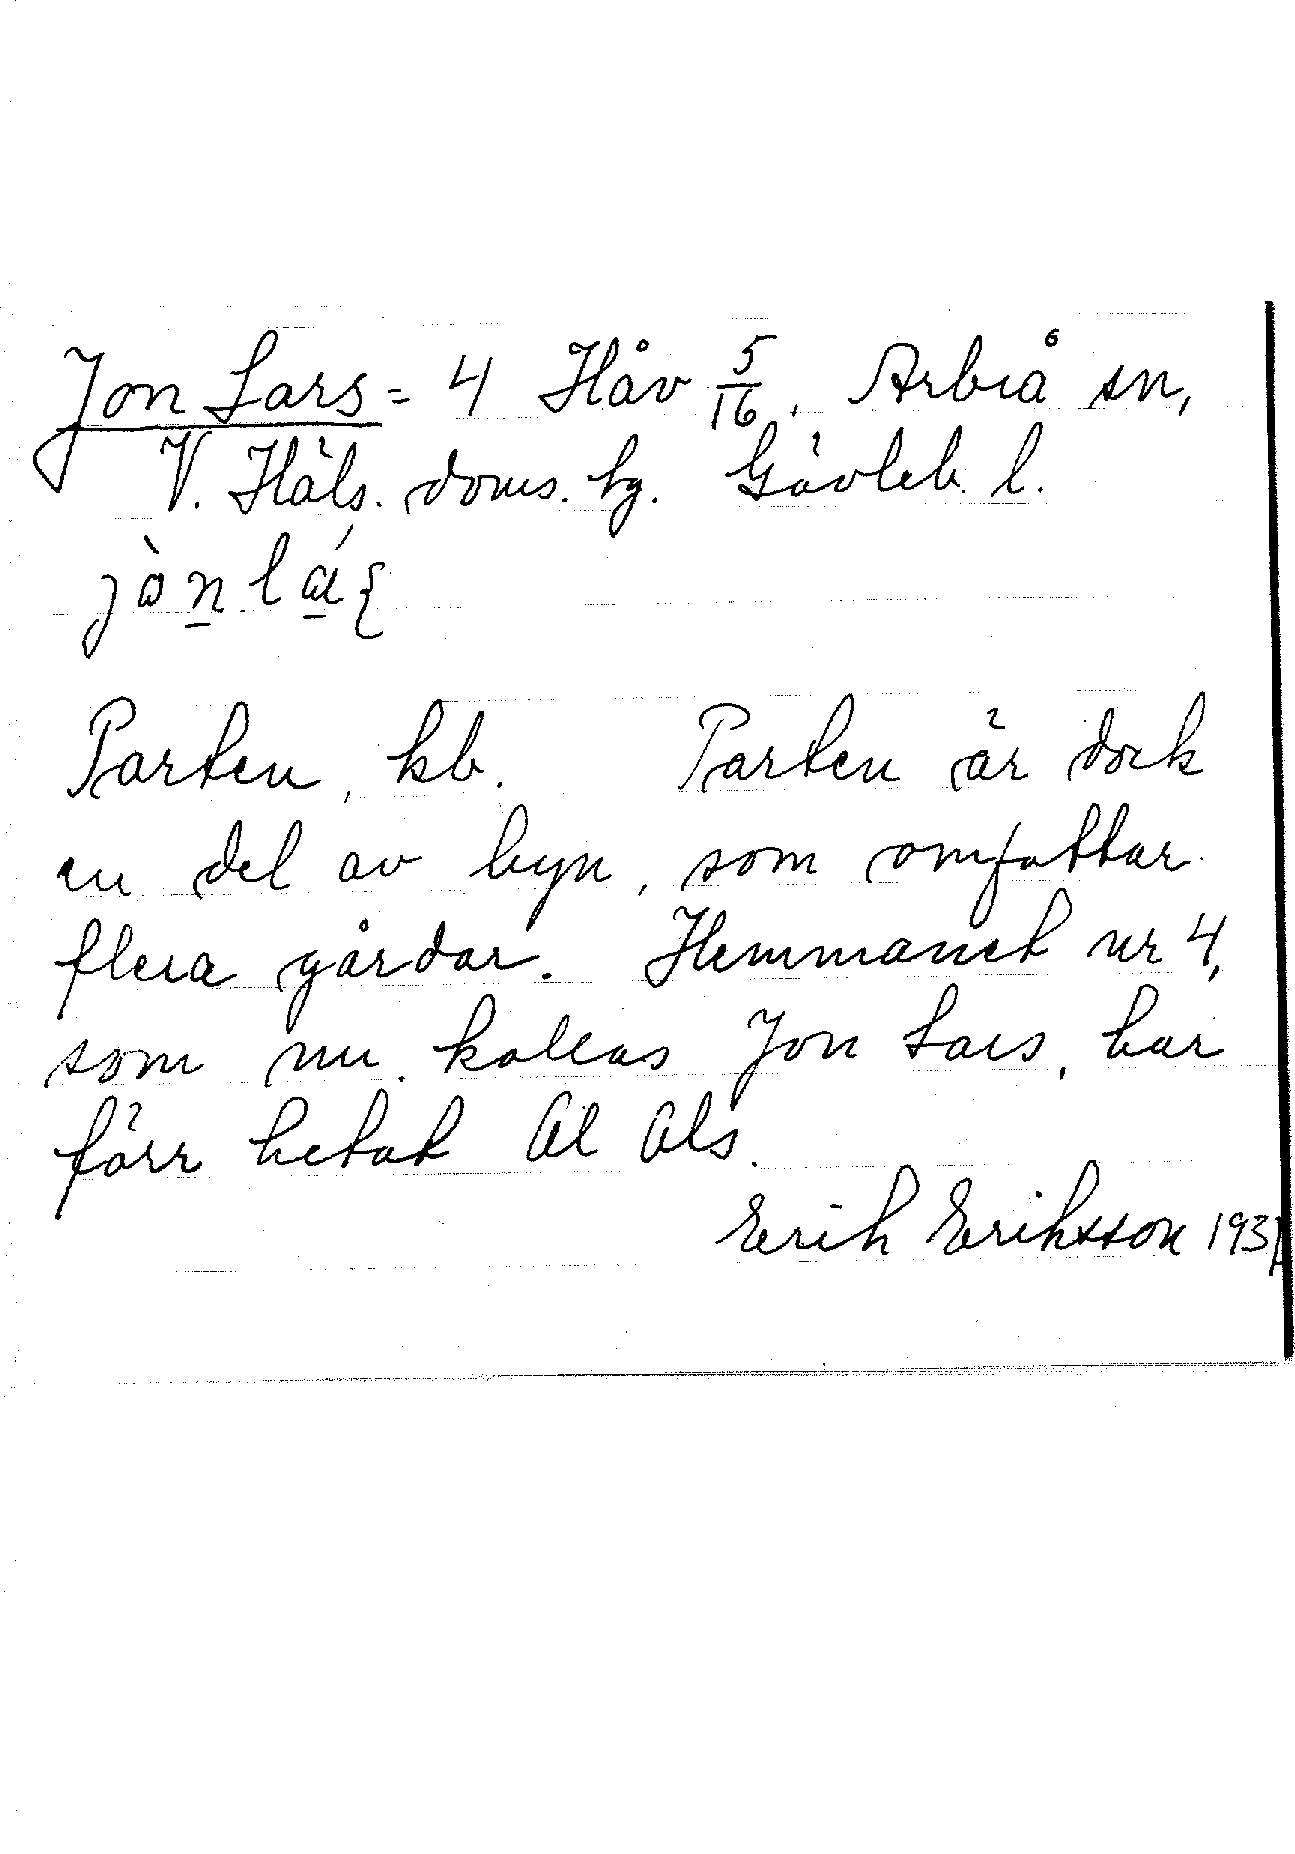 Jon Lars = 4 Håv 5/16, Arbrå sn,
V. Häls. doms. hg. Gävleb. l.
jònlá
Parten, kb. Parten är dock
en del av byn, som omfattar
flera gårdar. Hemmanet nr 4,
som nu kallas Jon Lars, har
förr hetat Ol Ols.
Erik Eriksson 193